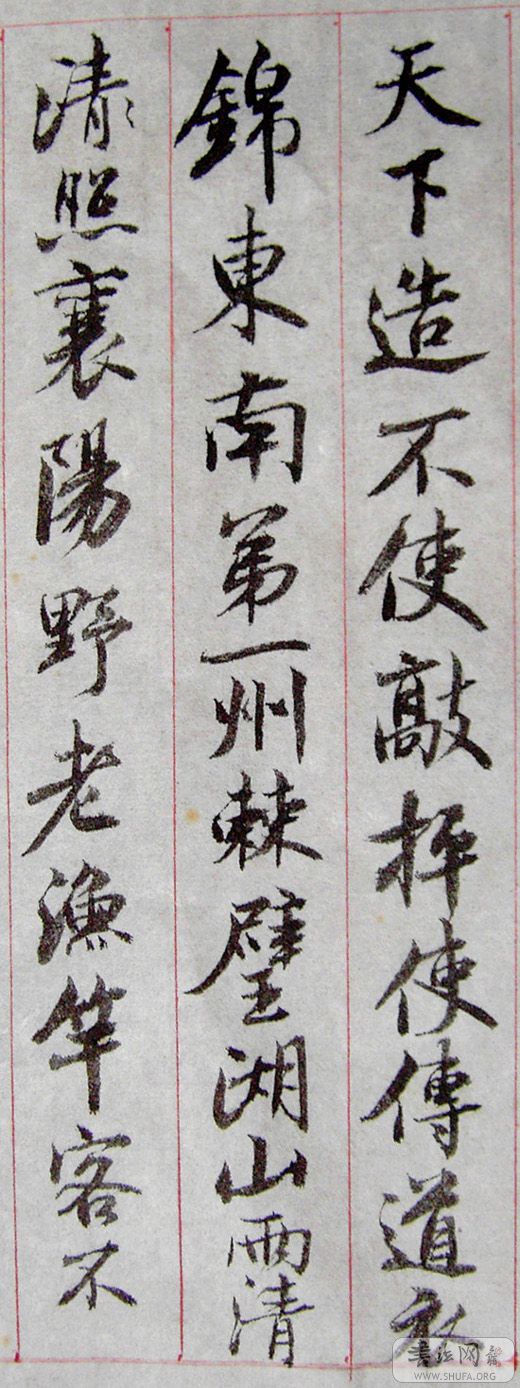 天下造不使敲抨使傳道衣
錦東南第一州棘璧湖山兩清
清照襄陽野老漁竿客不
书法网
WWW.SHUFA.ORG